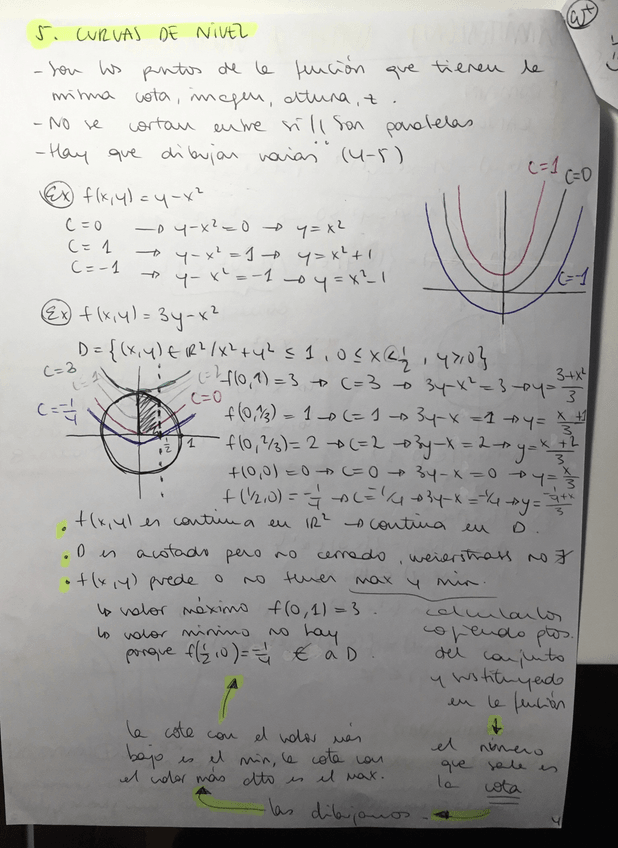 5. CURVAS DE NIVEL
- Son los puntos de la función que tienen la
misma cota, imagen, altura, z.
- No se cortan entre sí // Son "paralelas"
- Hay que dibujar varias (4-5)
Ex f(x,y) = y - x²
C=0 → y-x²=0 → y=x²
C=1 → y-x²=1 → y=x²+1
C=-1 → y-x²=-1 → y=x²-1
C=1 C=0
C=-1
Ex f(x,y) = 3y - x²
D = {(x,y) ∈ ℝ² / x²+y² ≤ 1, 0 ≤ x < 1/2, y ≥ 0}
C=3 C=1 C=2
C=0
C=-1/4
1/2 1
f(0,1) = 3 → C=3 → 3y-x²=3 → y=3+x²/3
f(0,1/3) = 1 → C=1 → 3y-x=1 → y=x+1/3
f(0,2/3) = 2 → C=2 → 3y-x=2 → y=x+2/3
f(0,0) = 0 → C=0 → 3y-x=0 → y=x/3
f(1/2,0) = -1/4 → C=-1/4 → 3y-x=-1/4 → y=-1/4+x/3
• f(x,y) es continua en ℝ² → continua en D.
• D es acotado pero no cerrado, weierstrass no
• f(x,y) puede o no tener max y min.
↳ valor máximo f(0,1) = 3.
↳ valor mínimo no hay
porque f(1/2,0) = -1/4 ∉ a D.
calcularlos
cogiendo ptos.
del conjunto
y sustituyendo
en la función
↓
el número
que sale es
la cota
las dibujamos.
la cota con el valor más
bajo es el min, la cota con
el valor más alto es el max.
4